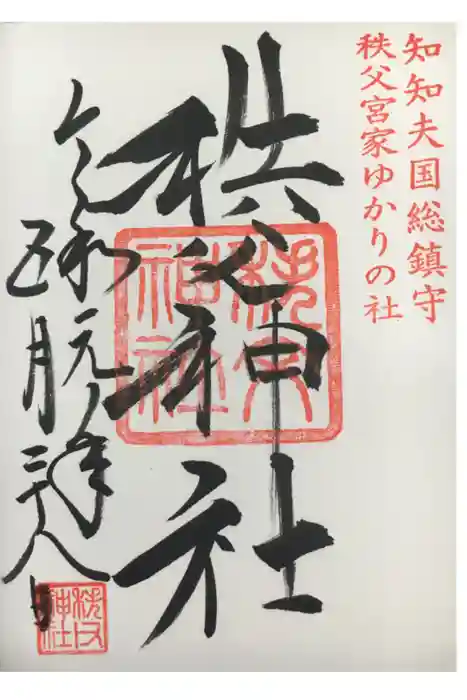 知知夫国総鎮守
秩父宮家ゆかりの社
秩父神社
秩父
神社
令和元年
五月二十八日
秩父
神社